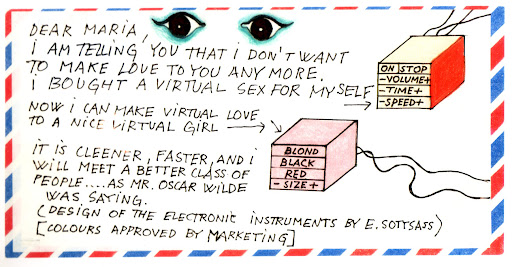 DEAR MARIA,
i AM TELLING YOU THAT i DON'T WANT
TO MAKE LOVE TO YOU ANY MORE.
i BOUGHT A VIRTUAL SEX FOR MYSELF
ON STOP
-VOLUME+
-TIME+
-SPEED+
NOW i CAN MAKE VIRTUAL LOVE
TO A NICE VIRTUAL GIRL
BLOND
BLACK
RED
-SIZE+
iT iS CLEENER, FASTER, AND i
WILL MEET A BETTER CLASS OF
PEOPLE.... AS MR. OSCAR WILDE
WAS SAYING.
(DESIGN OF THE ELECTRONIC INSTRUMENTS BY E. SOTTSASS)
[COLOURS APPROVED BY MARKETING]